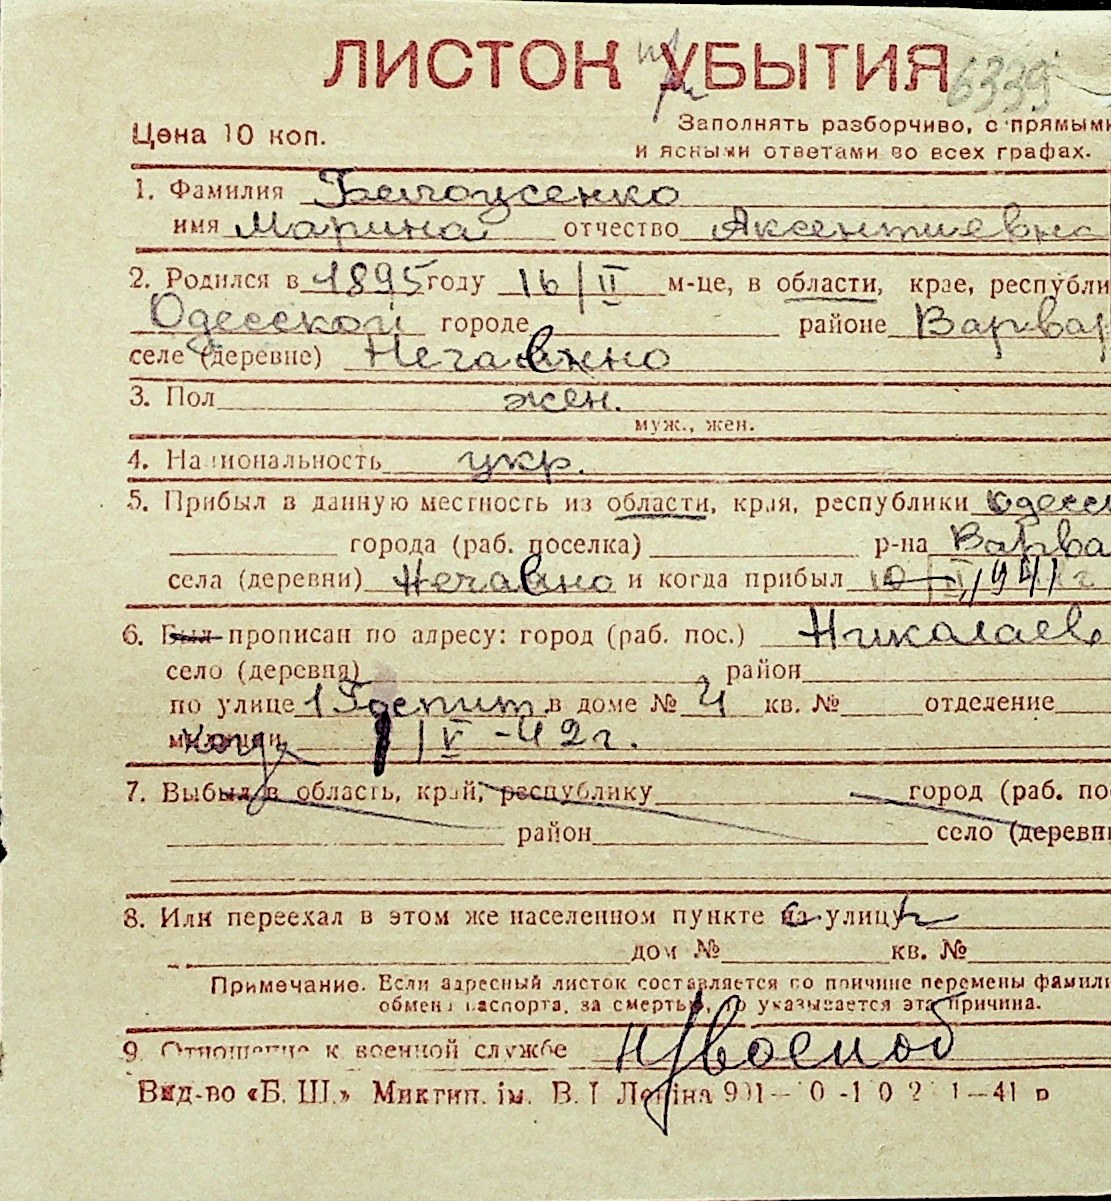 ЛИСТОК УБЫТИЯ 6339
Цена 10 коп.
Заполнять разборчиво, с прямыми
и ясными ответами во всех графах.
1. Фамилия Белоусенко
имя Марина отчество Аксентиевна
2. Родился в 1895 году 16/II м-це, в области, крае, республи
Одесской городе районе Варвар
селе (деревне) Нечаянно
3. Пол жен.
муж., жен.
4. Национальность укр.
5. Прибыл в данную местность из области, края, республики Одесс
города (раб. поселка) р-на Варва
села (деревни) Нечаяно и когда прибыл 10/I 1941 г
6. Был прописан по адресу: город (раб. пос.) Николаев
село (деревня) район
по улице 1 Госпит. в доме № 4 кв. № отделение
милиции когда 1/V-42 г.
7. Выбыл в область, край, республику город (раб. по
район село (деревн
8. Или переехал в этом же населенном пункте на улицу
дом № кв. №
Примечание. Если адресный листок составляется по причине перемены фамили
обмена паспорта, за смертью, то указывается эта причина.
9. Отношение к военной службе н/военоб
Вид-во «Б. Ш.» Миктип. ім. В. І Леніна